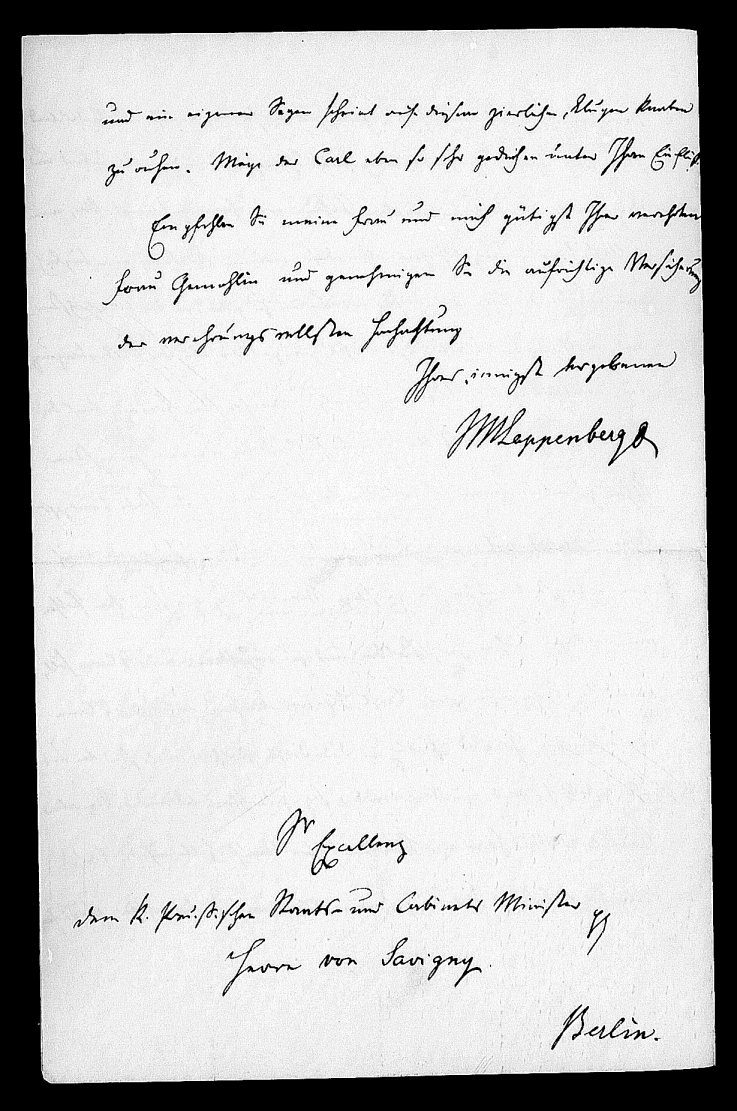 und ein eigener Segen scheint auf diesem zierlichen, klugen Knaben
zu ruhen. Möge der Carl eben so sehr gedeihen unter Ihrem Einfluß
Empfehlen Sie meine Frau und mich gütigst Ihrer verehrten
Frau Gemahlin und genehmigen Sie die aufrichtige Versicherung
der verehrungsvollsten Hochachtung
Ihres innigst ergebenen
JMLappenberg
Sr
Excellenz
dem K. Preußischen Staats- und Cabinets Minister pp
Herrn von Savigny.
Berlin.